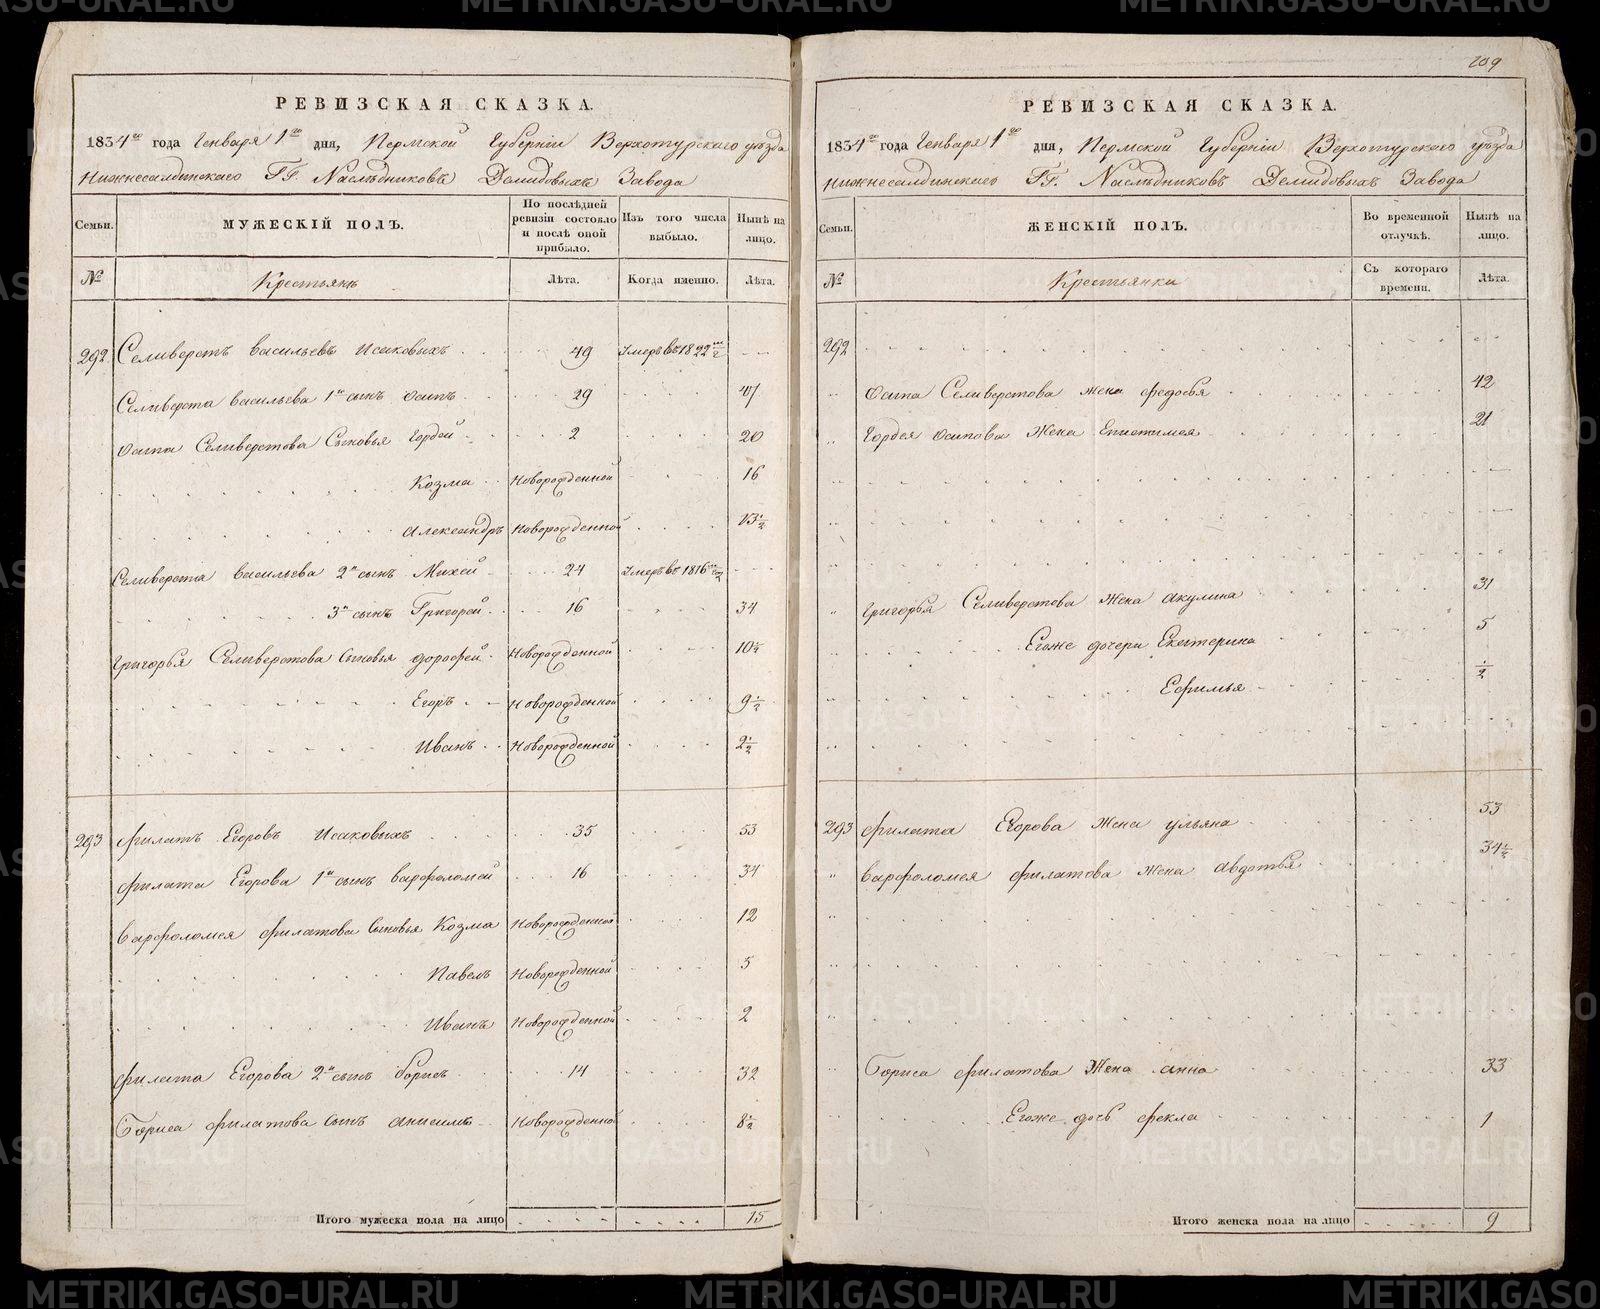 РЕВИЗСКАЯ СКАЗКА.
1834го года Генваря 1го дня, Пермской Губернiи Верхотурскаго уѣзда
Нижнесалдинскаго ГГ. Наслѣдниковъ Демидовыхъ Завода
Семьи. МУЖЕСКIЙ ПОЛЪ. По послѣдней ревизiи состояло и послѣ оной прибыло. Изъ того числа выбыло. Нынѣ на лицо.
№ Крестьянъ Лѣта. Когда именно. Лѣта.
292. Селиверстъ васильевъ Исаковыхъ 49 Умеръ въ 1822м
Селиверста васильева 1й сынъ осипъ 29 47
осипа Селиверстова Сыновья Гордей 2 20
Козма Новорожденной 16
Александръ Новорожденной 13 1/2
Селиверста васильева 2й сынъ Михей 24 Умеръ въ 1816м
3й сынъ Григорей 16 34
Григорья Селиверстова Сыновья дорофей Новорожденной 10 1/2
Егоръ Новорожденной 9 1/2
Иванъ Новорожденной 2 1/2
293 филатъ Егоровъ Исаковыхъ 35 53
филата Егорова 1й сынъ варфоломей 16 34
варфоломея филатова Сыновья Козма Новорожденной 12
Павелъ Новорожденной 5
Иванъ Новорожденной 2
филата Егорова 2й сынъ борисъ 14 32
Бориса филатова сынъ анисимъ Новорожденной 8 1/2
Итого мужеска пола на лицо 15
209
РЕВИЗСКАЯ СКАЗКА.
1834го года Генваря 1го дня, Пермской Губернiи Верхотурскаго уѣзда
Нижнесалдинскаго ГГ. Наслѣдниковъ Демидовыхъ Завода
Семьи. ЖЕНСКIЙ ПОЛЪ. Во временной отлучкѣ. Нынѣ на лицо.
№ Крестьянки Съ котораго времени. Лѣта.
292
Осипа Селиверстова жена федосья 42
Гордея осипова жена Епистимея 21
Григорья Селиверстова жена акулина 31
Егоже дочери Екатерина 5
Ефимья 1/2
293 филата Егорова жена ульяна 53
варфоломея филатова жена авдотья 34 1/2
Бориса филатова жена анна 33
Егоже дочь фекла 1
Итого женска пола на лицо 9
METRIKI.GASO-URAL.RU